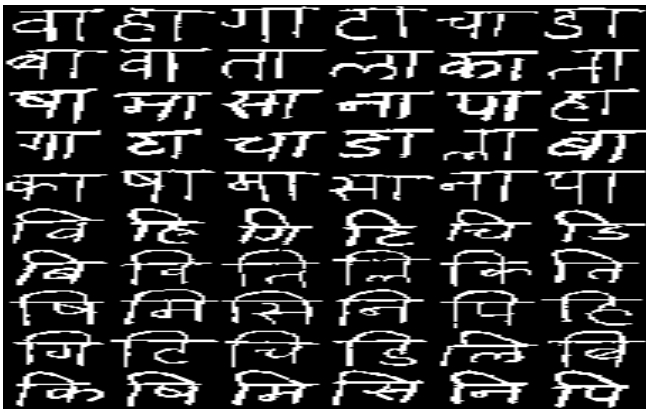 वा हा गा टा चा डा
बा वा ता ला का ता
षा मा सा ना पा हा
गा टा चा डा ला बा
का षा मा सा ना पा
वि हि गि टि चि डि
बि वि ति लि कि ति
षि मि सि नि पि हि
गि टि चि डि लि बि
कि षि मि सि नि पि